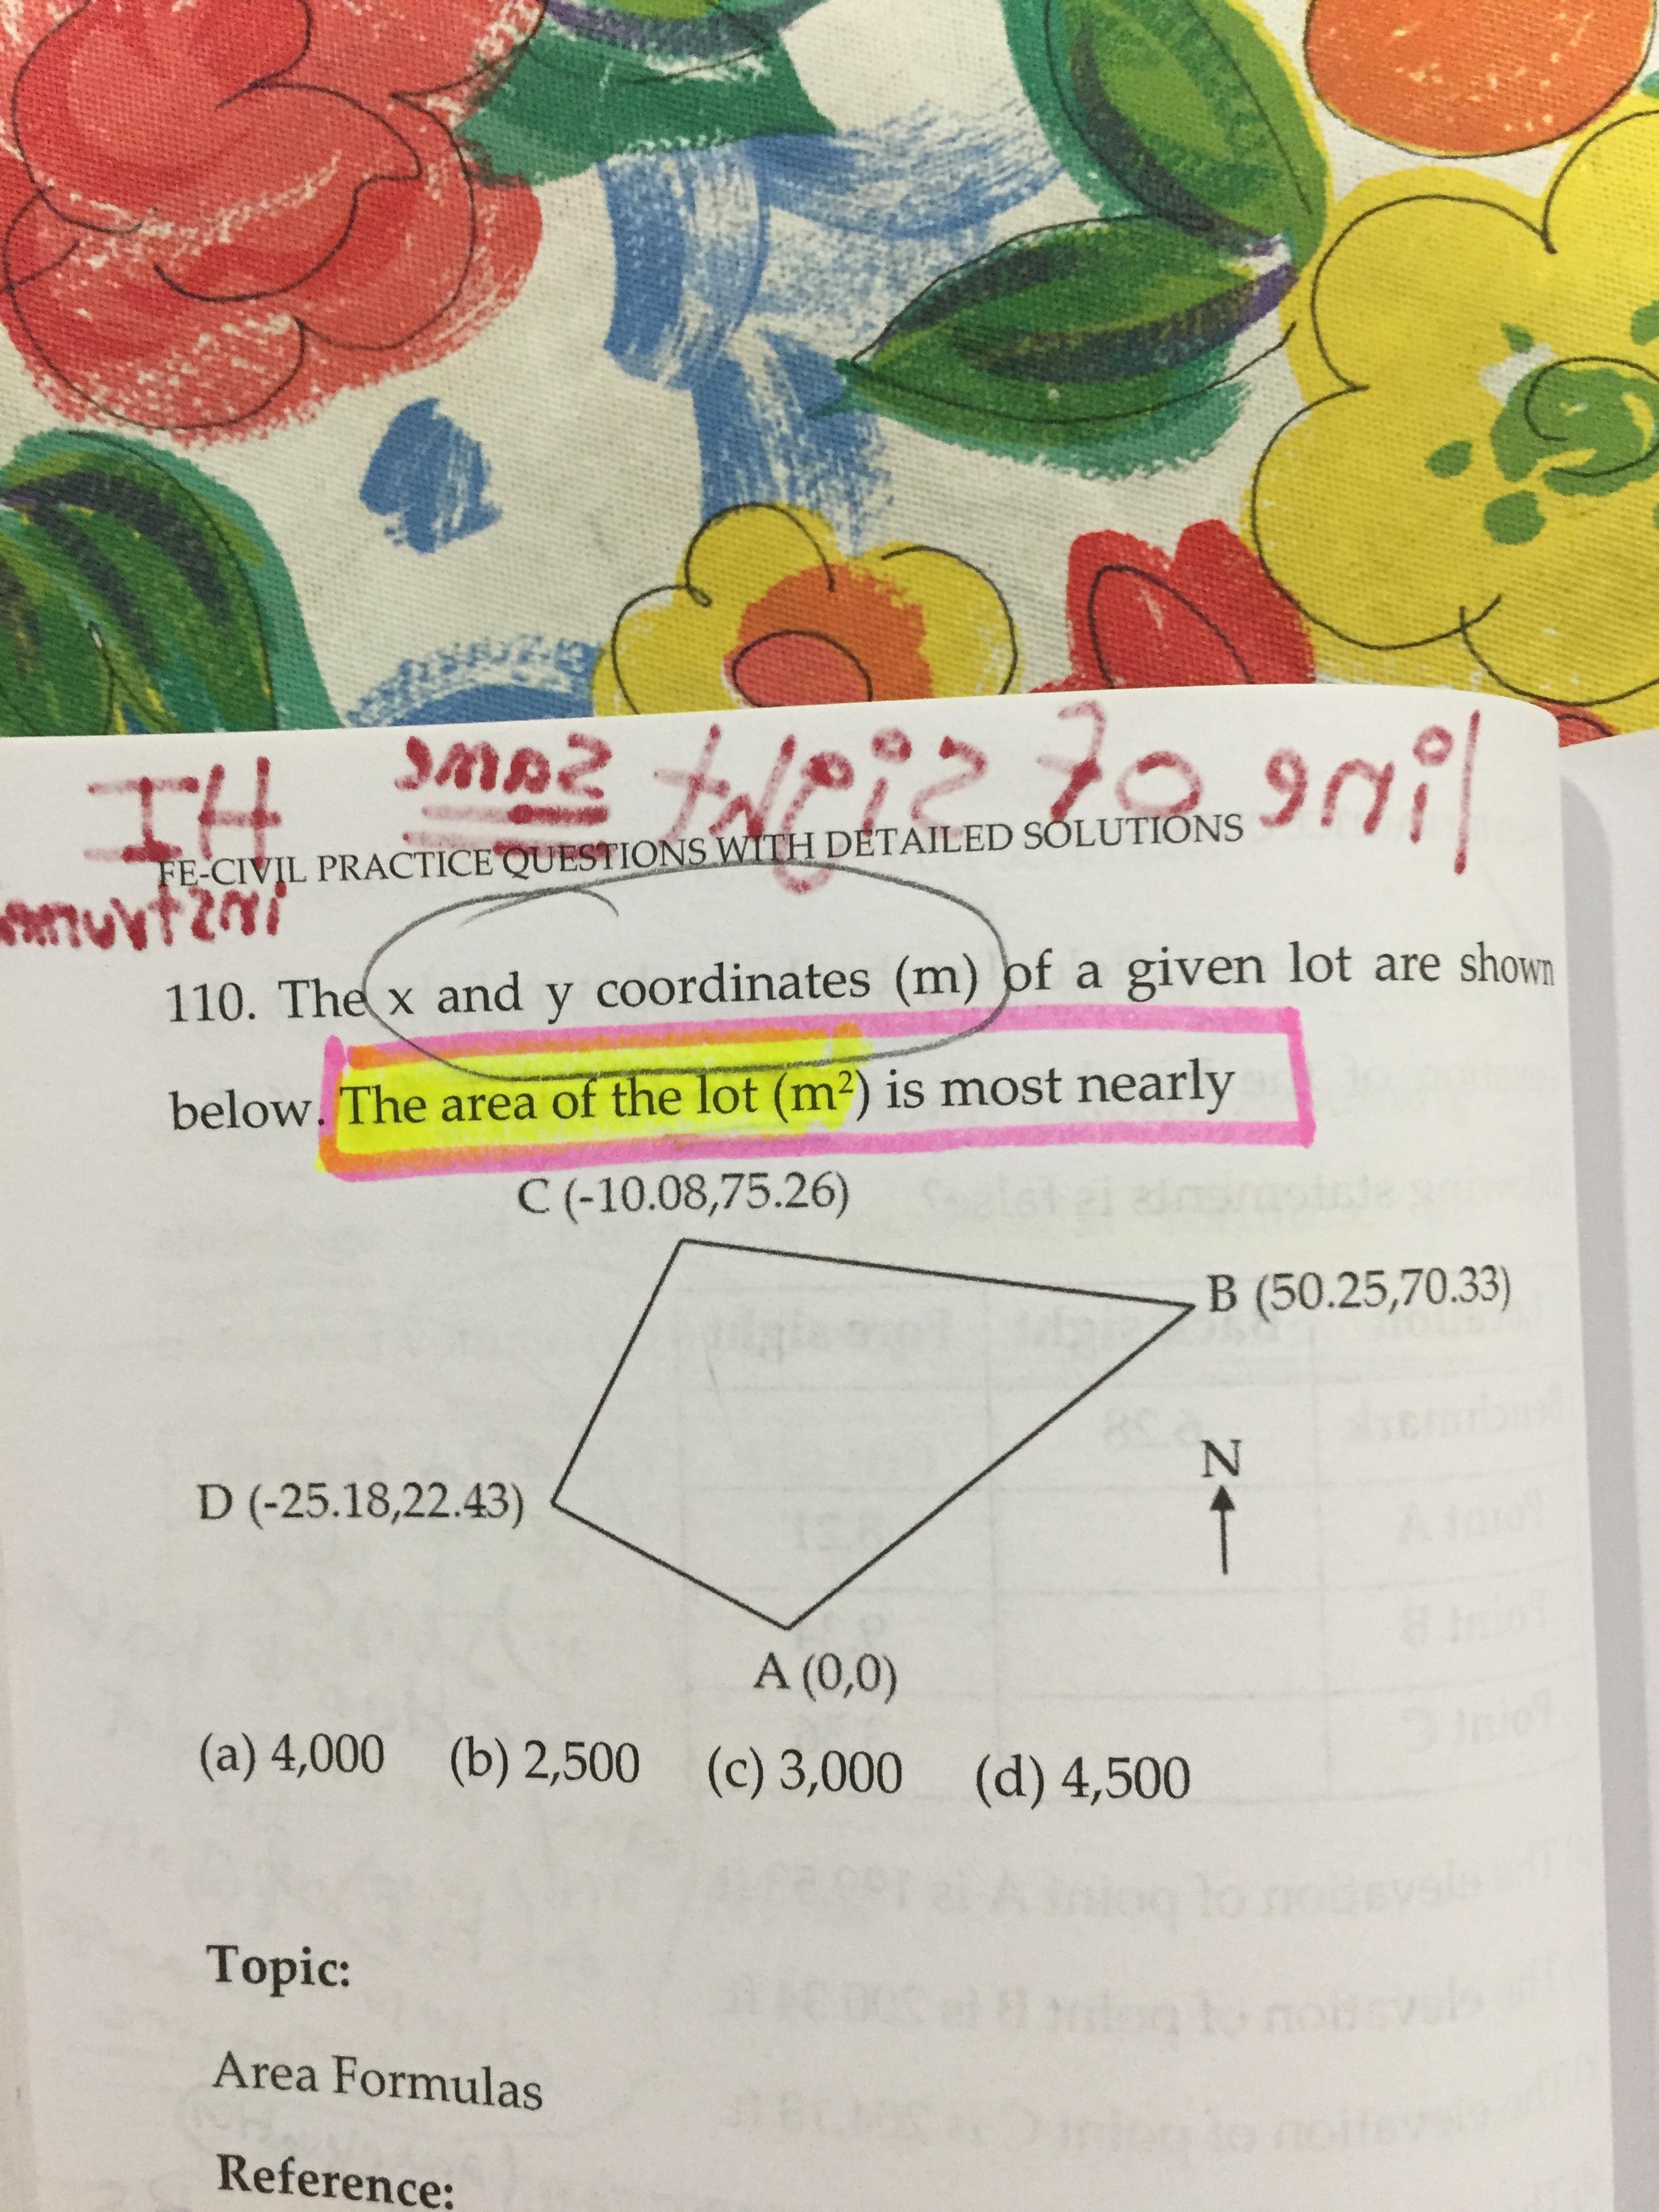 line of sight same HI
instrum
FE-CIVIL PRACTICE QUESTIONS WITH DETAILED SOLUTIONS
110. The x and y coordinates (m) of a given lot are shown
below. The area of the lot (m²) is most nearly
C (-10.08,75.26)
B (50.25,70.33)
N
D (-25.18,22.43)
A (0,0)
(a) 4,000 (b) 2,500 (c) 3,000 (d) 4,500
Topic:
Area Formulas
Reference: